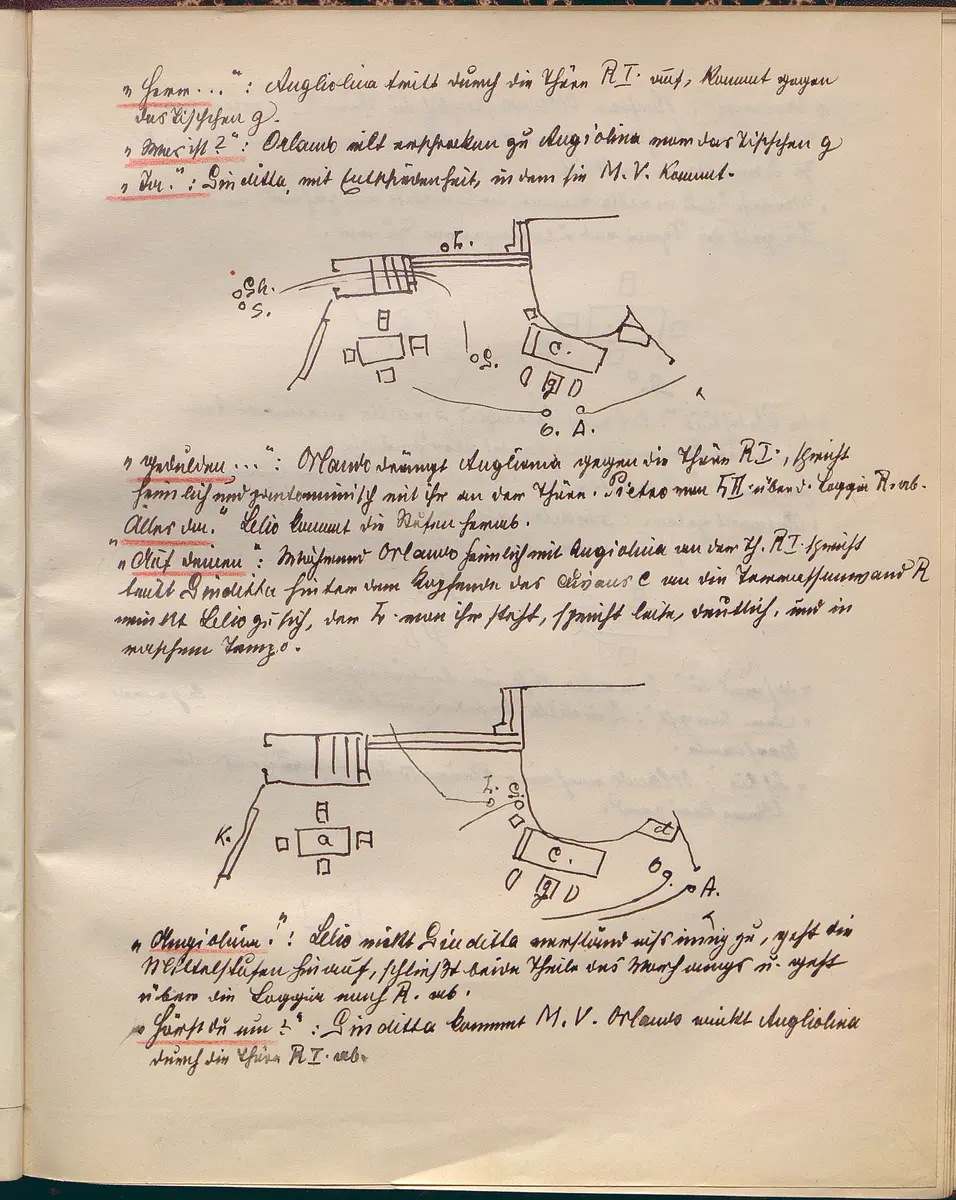 „Herr...“: Angliolina tritt durch die Thüre R I. auf, kommt gegen
das Tischchen g.
„Was ist?“: Orlando eilt erschrocken zu Angiolina vor das Tischchen g
„Ja.“: Giuditta, mit Entschiedenheit, in dem sie M. V. kommt.
L.
Gh.
S.
G.
c.
g
O. A.
„gedulden...“: Orlando drängt Angliona gegen die Thüre R I., spricht
heimlich und pantomimisch mit ihr an der Thüre. Pietro von L II. über d. Loggia R. ab.
Alles da.“ Lelio kommt die Stufen herab.
„Auf deinen“: Während Orlando heimlich mit Angiolina an der Th. R I. spricht
tritt Giuditta hinter dem Kopfende des Divans c an die Terrassenwand R
winkt Lelio zu sich, der L. von ihr steht, spricht leise, deutlich, und in
raschem Tempo.
L. G.
K.
a
d
c.
g
O.
A.
„Angiolina!“: Lelio nickt Giuditta verständnissinnig zu, geht die
Mittelstufen hinauf, schließt beide Theile des Vorhangs u. geht
über die Loggia nach R. ab.
„Hörst du um?“: Giuditta kommt M. V. Orlando winkt Angliolina
durch die Thüre R I. ab.